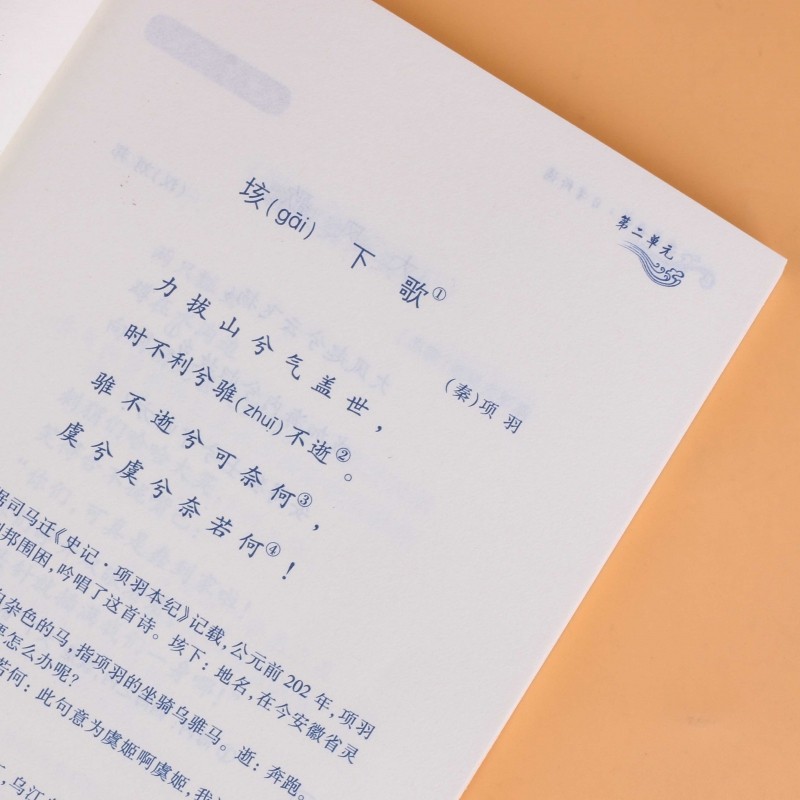 第二单元
垓(gāi) 下 歌①
(秦)项 羽
力拔山兮气盖世，
时不利兮骓(zhuī)不逝②。
骓不逝兮可奈何③，
虞兮虞兮奈若何④！
据司马迁《史记·项羽本纪》记载，公元前 202 年，项羽
邦围困，吟唱了这首诗。垓下：地名，在今安徽省灵
白杂色的马，指项羽的坐骑乌骓马。逝：奔跑。
怎么办呢？
若何：此句意为虞姬啊虞姬，我
，乌江